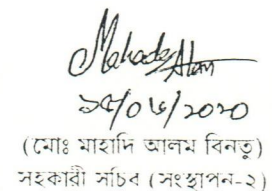 Mahade Alam
১৫/০৬/২০২০
(মোঃ মাহাদি আলম বিনতু)
সহকারী সচিব (সংস্থাপন-২)